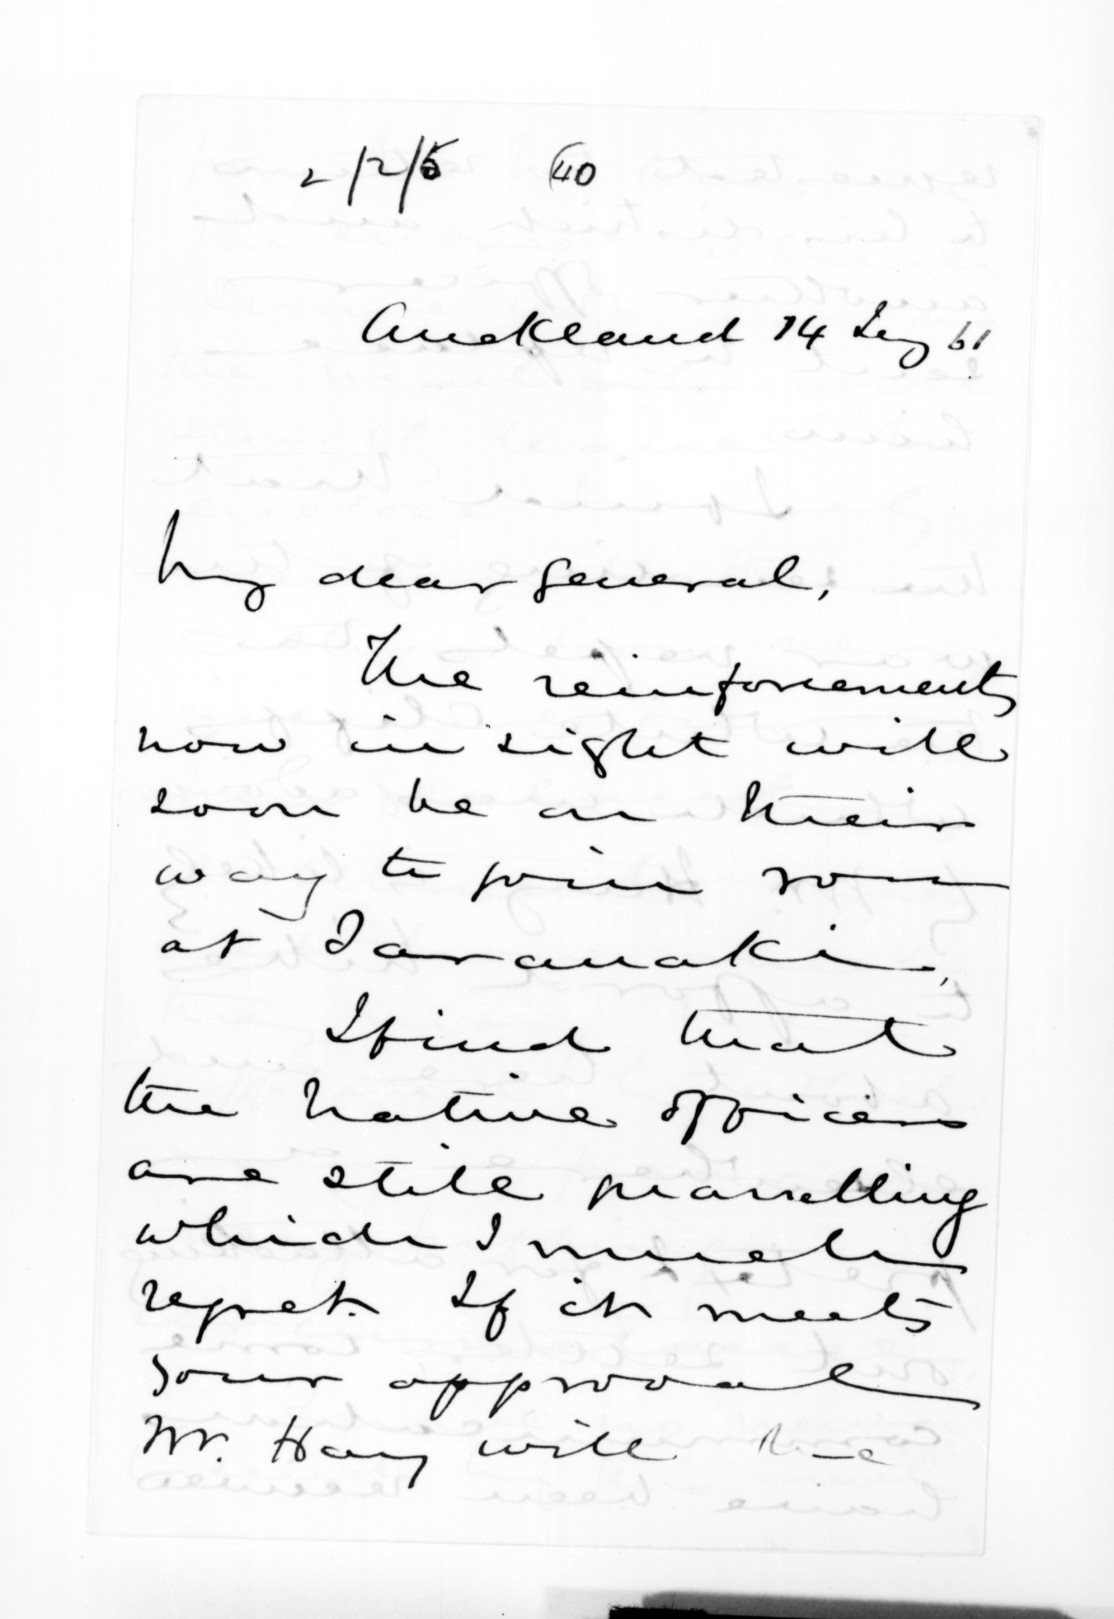 2/2/5 40
Auckland 14 Jany 61
My dear General,
The reinforcements
now in sight will
soon be on their
way to join you
at Taranaki,
I find that
the Native Officers
are still quarrelling
which I much
regret. If it meets
your approval
Mr. Hay will be